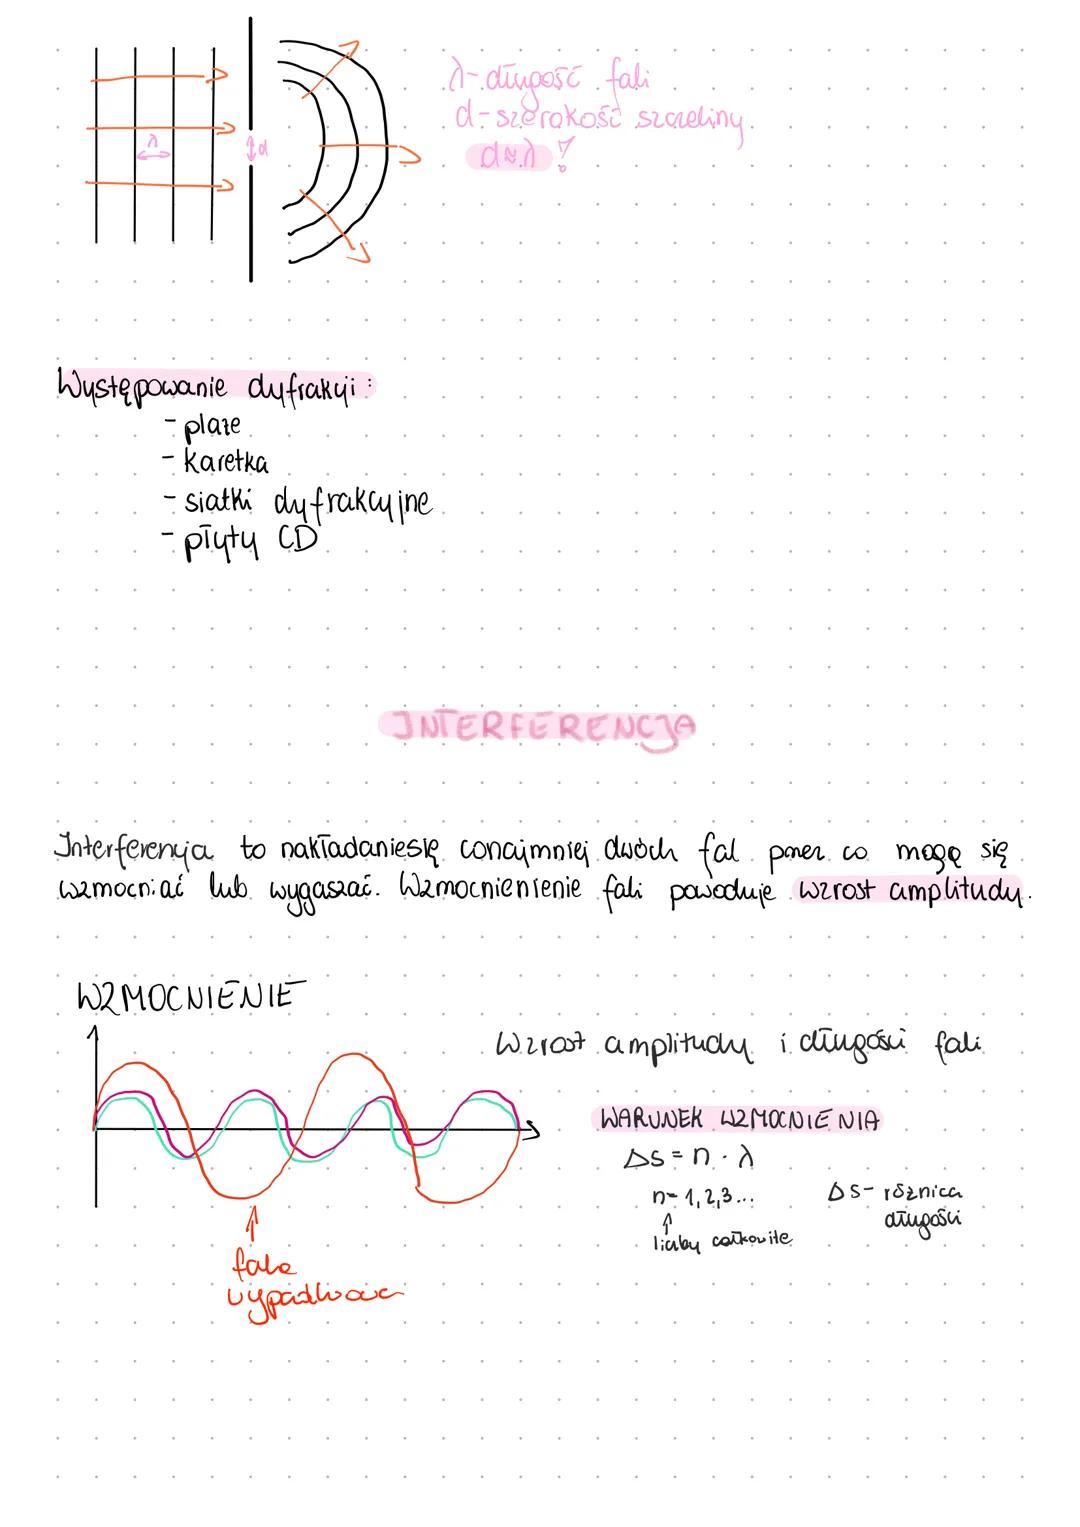 λ-długość fali
d-szerokość szczeliny
d≈λ!
λ
d
Występowanie dyfrakcji:
- plaże
- karetka
- siatki dyfrakcyjne
- płyty CD
INTERFERENCJA
Interferencja to nakładaniesię conajmniej dwóch fal przez co mogą się
wzmocniać lub wygaszać. Wzmocnienienie fali powoduje wzrost amplitudy.
WZMOCNIENIE
Wzrost amplitudy i długości fali
WARUNEK WZMOCNIENIA
Δs = n · λ
n- 1,2,3...
liczby całkowite
Δs- różnica
długości
fala
wypadkowa